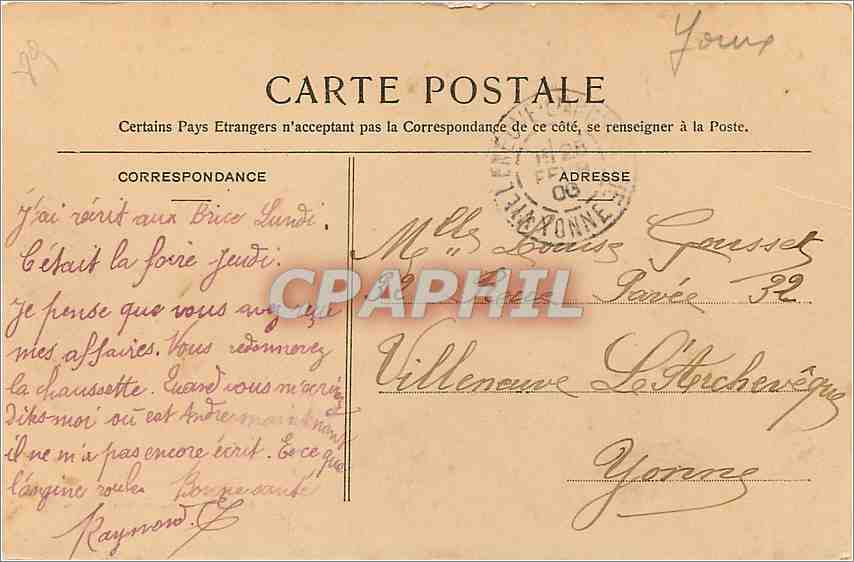 Yonne
CARTE POSTALE
Certains Pays Etrangers n'acceptent pas la Correspondance de ce côté, se renseigner à la Poste.
CORRESPONDANCE
ADRESSE
J'ai écrit aux Brice Lundi.
C'était la foire Jeudi.
Je pense que vous avez reçu
mes affaires. Vous redonnerez
la chaussette. Quand vous m'écrirez
dites-moi où est André maintenant
il ne m'a pas encore écrit. Es ce que
l'angine roule. Bonne santé
Raymond.
Mlle Louise Gousset
32 Rue Pavée 32
Villeneuve L'Archevêque
Yonne
VILLENEUVE-L'ARCHEVEQUE
28
FEVR
06
YONNE
CPAPHIL